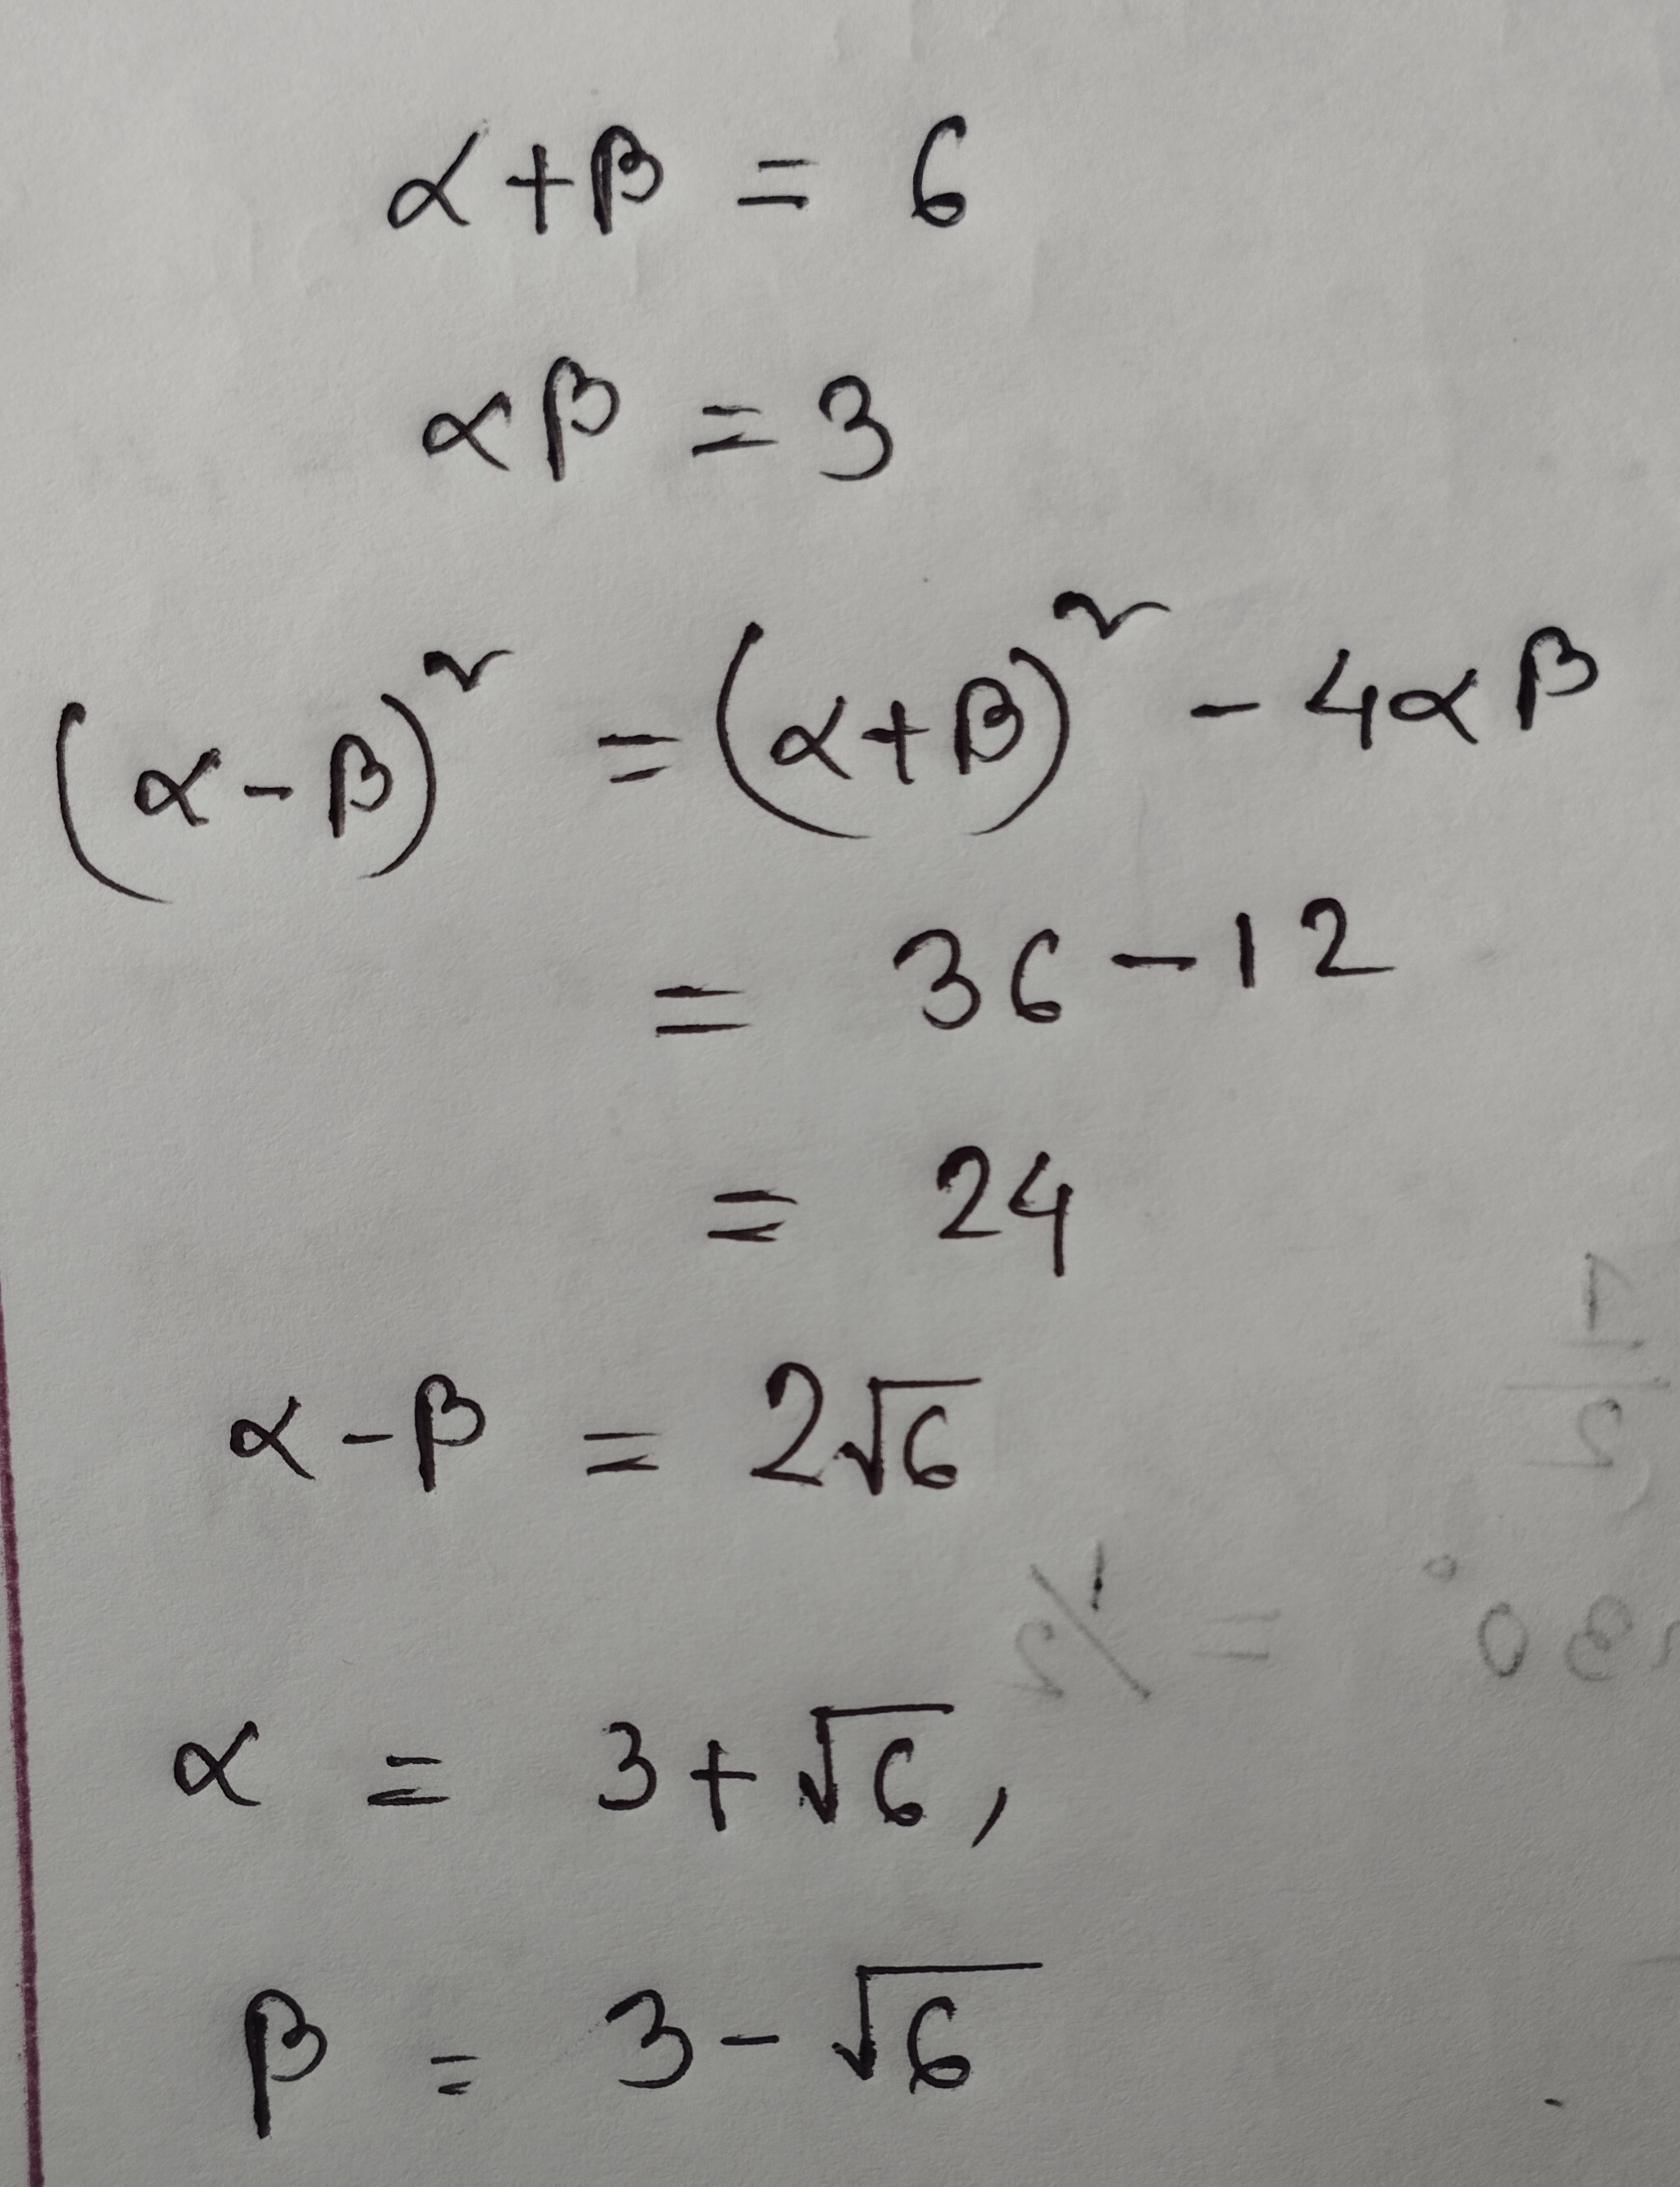 α + β = 6
αβ = 3
(α - β)² = (α + β)² - 4αβ
= 36 - 12
= 24
α - β = 2√6
α = 3 + √6,
β = 3 - √6